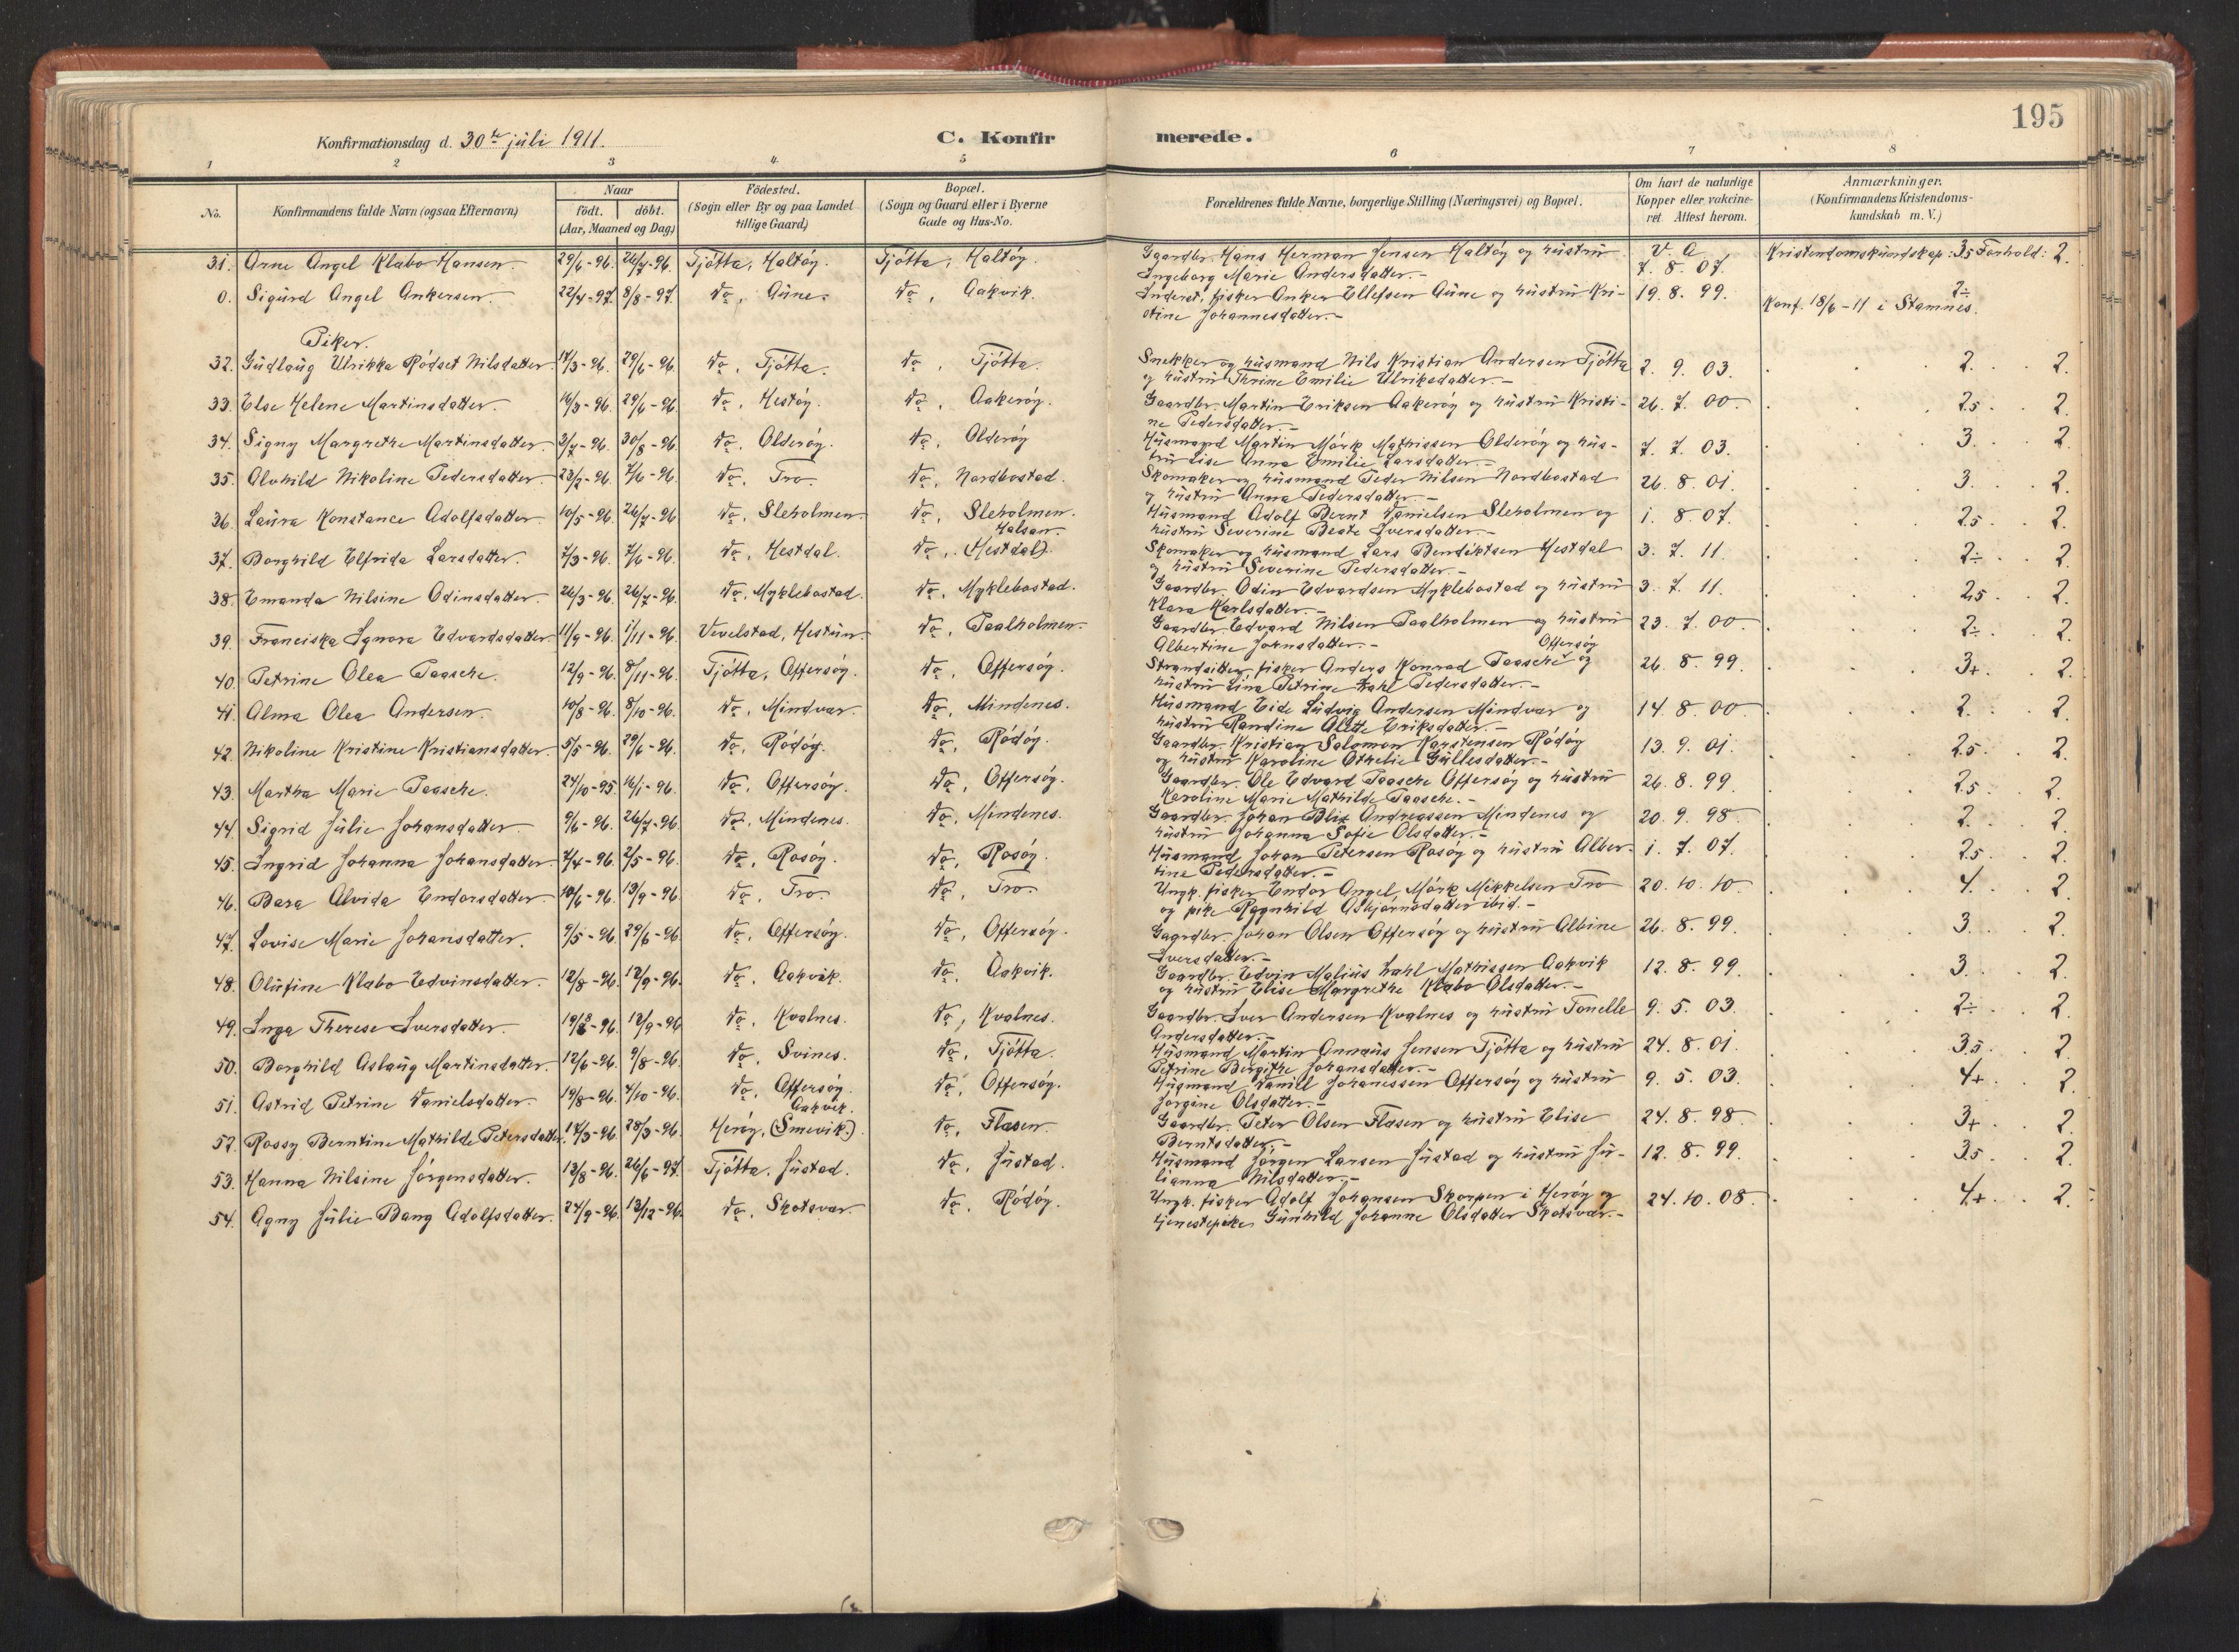 195
Konfirmationsdag d. 30te juli 1911.
C. Konfirmerede.
1 2 3 4 5 6 7 8
No. Konfirmandens fulde Navn (ogsaa Efternavn) Naar födt. döbt. (Aar, Maaned og Dag) Födested. (Sogn eller By og paa Landet tillige Gaard) Bopæl. (Sogn og Gaard eller i Byerne Gade og Hus-No. Forældrenes fulde Navne, borgerlige Stilling (Næringsvei) og Bopæl. Om havt de naturlige Kopper eller vaccineret. Attest herom. Anmærkninger. (Konfirmandens Kristendomskundskab m. V.)
31. Arne Angel Klæbo Hansen. 29/6-96. 26/7-96. Tjøtta, Haltøy. Tjøtta, Haltøy. Gaardbr. Hans Herman Jensen Haltøy og hustru V. A. Kristendomskundskap: 3,5 Forhold: 2.
Ingeborg Marie Andersdatter.- 7. 8. 07.
0. Sigurd Angel Ankersen. 22/4-97. 8/8-97. Do, Aune. Do, Aakvik. Inderst, fisker Anker Ellefsen Aune og hustru Kri- 19. 8. 99. 2÷
stine Johannesdatter.- Konf. 18/6-11 i Stamnes.
Piker.
32. Gudlaug Ulrikka Rødset Nilsdatter. 17/3-96. 29/6-96. Do, Tjøtta. Do, Tjøtta. Snekker og husmand Nils Kristian Andersen Tjøtta 2. 9. 03. 2. 2.
og hustru Thrine Emilie Ulriksdatter.-
33. Else Helene Martinsdatter. 16/3-96. 29/6-96. Do, Hestøy. Do, Aakerøy. Gaardbr. Martin Eriksen Aakerøy og hustru Kristi- 26. 7. 00. 2,5 2.
ne Pedersdatter.-
34. Signy Margrethe Martinsdatter. 3/7-96. 30/8-96. Do, Olderøy. Do, Olderøy Husmand Martin Mørk Mathissen Olderøy og hus- 7. 7. 03. 3. 2.
tru Lise Anna Emilie Larsdatter.-
35. Alvhild Nikoline Pedersdatter. 23/2-96. 7/6-96. Do, Tro. Do, Nordbostad. Skomaker og husmand Peder Nilsen Nordbostad 26. 8. 01. 3. 2.
og hustru Anna Pedersdatter.-
36. Laura Konstance Adolfsdatter. 10/5-96. 26/7-96. Do, Sleholmen. Do, Sleholmen. Husmand Adolf Bernt Danielsen Sleholmen og 1. 8. 07. 2,5 2.
hustru Severine Beate Iversdatter.-
37. Borghild Elfrida Larsdatter. 7/3-96. 7/6-96. Do, Hestdal. Do, Halsan. (Hestdal). Skomaker og husmand Lars Bendiktsen Hestdal 3. 7. 11. 2÷ 2.
og hustru Severine Pedersdatter.-
38. Emanda Nilsine Odinsdatter. 26/3-96. 26/7-96. Do, Myklebostad. Do, Myklebostad. Gaardbr. Odin Edvardsen Myklebostad og hustru 3. 7. 11. 2,5 2.
Klara Karlsdatter.-
39. Franciska Ignora Edvardsdatter. 11/9-96. 1/11-96. Vevelstad, Hestun. Do, Paalholmen. Gaardbr. Edvard Nilsen Paalholmen og hustru 23. 7. 00. 2÷ 2.
Albertine Johnsdatter.-
40. Petrine Olea Paasche. 12/9-96. 8/11-96. Tjøtta, Offersøy. Do, Offersøy. Strandsitter, fisker Anders Konrad Paasche Offersøy og 26. 8. 99. 3+ 2.
hustru Lina Petrine Zahl Pedersdatter.-
41. Alma Olea Andersen. 10/8-96. 8/10-96. Do, Mindvær. Do, Mindenes. Husmand Eide Ludvig Andersen Mindvær og 14. 8. 00. 2. 2.
hustru Randine Alette Eriksdatter.-
42. Nikoline Kristine Kristiansdatter. 5/5-96. 29/6-96. Do, Rødøy. Do, Rødøy. Gaardbr. Kristian Salomon Karstensen Rødøy 13. 9. 01. 2,5 2.
og hustru Karoline Othelie Gullesdatter.-
43. Martha Marie Paasche. 24/10-95. 16/1-96. Do, Offersøy. Do, Offersøy. Gaardbr. Ole Edvard Paasche Offersøy og hustru 26. 8. 99. 2,5 2.
Karoline Marie Mathilde Paasche.-
44. Sigrid Julie Johansdatter. 9/6-96. 26/7-96. Do, Mindenes. Do, Mindenes. Gaardbr. Johan Blix Andreassen Mindenes og 20. 9. 98. 2. 2.
hustru Johanna Sofie Olsdatter.-
45. Ingrid Johanna Johansdatter. 7/4-96. 2/5-96. Do, Rosøy. Do, Rosøy. Husmand Johan Petersen Rosøy og hustru Alber- 1. 7. 07. 2,5 2.
tine Pedersdatter.-
46. Bara Alvida Endorsdatter. 10/6-96. 13/9-96. Do, Tro. Do, Tro. Ungk. fisker Endor Angel Mørk Mikkelsen Tro 20. 10. 10. 4. 2.
og pike Ragnhild Asbjørnsdatter ibid.-
47. Lovise Marie Johansdatter. 9/5-96. 29/6-96. Do, Offersøy. Do, Offersøy. Gaardbr. Johan Olsen Offersøy og hustru Albine 26. 8. 99. 3. 2.
Iversdatter.-
48. Olufine Klæbo Edvinsdatter. 12/8-96. 12/9-96. Do, Aakvik. Do, Aakvik. Gaardbr. Edvin Malius Zahl Mathissen Aakvik 12. 8. 99. 3. 2.
og hustru Elise Margrethe Klæbo Olsdatter.-
49. Inga Therese Iversdatter. 19/8-96. 12/9-96. Do, Kvalnes. Do, Kvalnes. Gaardbr. Iver Andersen Kvalnes og hustru Tonelle 9. 5. 03. 2÷ 2.
Andersdatter.-
50. Borghild Aslaug Martinsdatter. 12/6-96. 9/8-96. Do, Svines. Do, Tjøtta. Husmand Martin Annæus Jensen Tjøtta og hustru 24. 8. 01. 3,5 2.
Petrine Bergithe Johansdatter.-
51. Astrid Petrine Danielsdatter. 19/8-96. 4/10-96. Do, Offersøy. Do, Offersøy. Husmand Daniel Johanessen Offersøy og hustru 9. 5. 03. 4+ 2.
Jørgine Olsdatter.-
52. Rossy Berntine Mathilde Petersdatter. 17/3-96. 28/3-96. Herøy, Aakvik. (Smevik.) Do, Flæsen. Gaardbr. Peter Olsen Flæsen og hustru Elise 24. 8. 98. 3+ 2.
Berntsdatter.-
53. Hanna Nilsine Jørgensdatter. 13/8-96. 26/6-97. Tjøtta, Justad. Do, Justad. Husmand Jørgen Larsen Justad og hustru Ju- 12. 8. 99. 3,5 2.
lianna Nilsdatter.-
54. Agny Julie Bang Adolfsdatter. 24/9-96. 13/12-96. Do, Skotsvær. Do, Rødøy. Ungk. fisker Adolf Johansen Skorpen i Herøy og 24. 10. 08. 4+ 2.
tjenestepike Gunhild Johanne Olsdatter Skotsvær.-